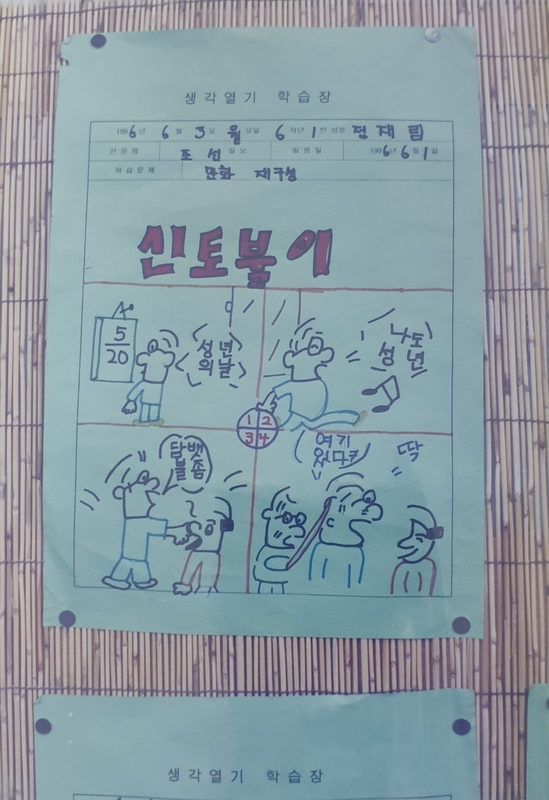 생각열기 학습장
1996년 6월 3일 월요일 6학년 1반 성명 전재림
신문명 조선일보 발행일 1996년 6월 1일
학습문제 만화 재구성
신토불이
5
20
성년
의날
나도
성년
1 2
3 4
담뱃
불좀
여기
있다
딱
생각열기 학습장